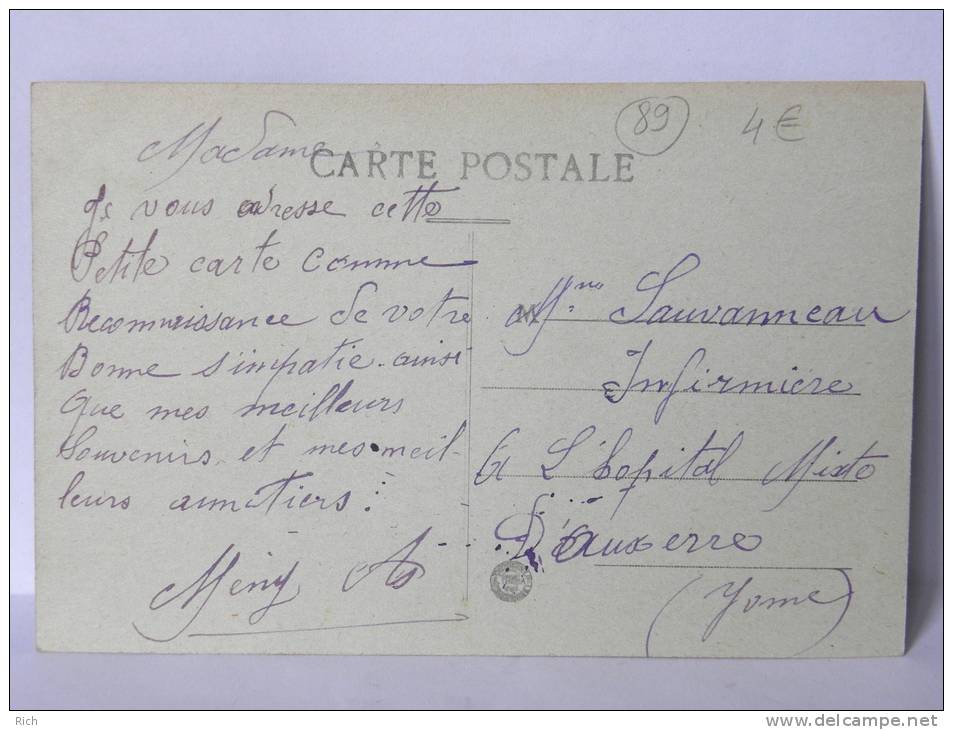 89
4€
CARTE POSTALE
Madame
Je vous adresse cette
Petite carte comme
Reconnaissance de votre
Bonne s'impatie ainsi
que mes meilleurs
Souvenirs et mes meil-
leurs amitiers
Mme Sauvanneau
Infirmiere
a L'hopital Mixte
D'auxerre
(Yonne)
Rich
www.delcampe.net